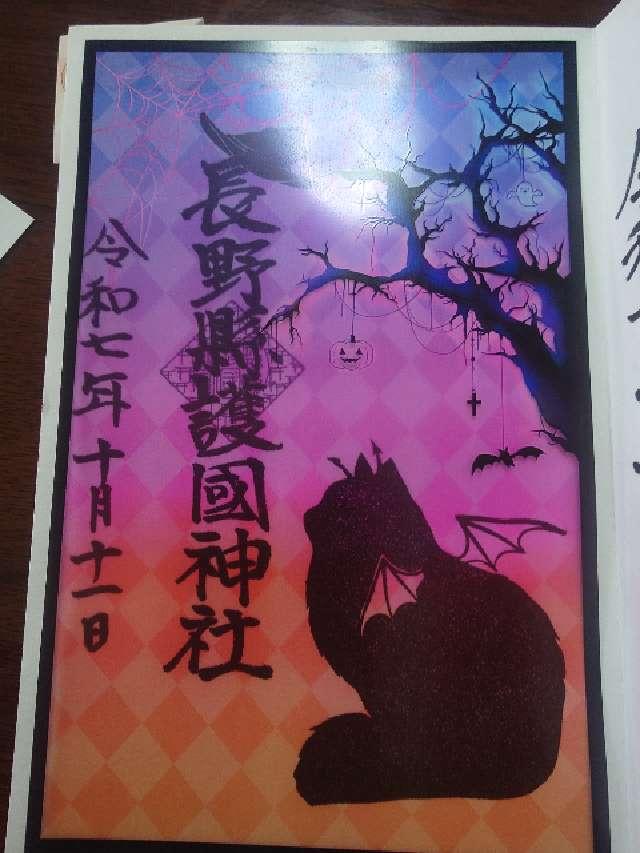 長野縣護國神社
令和七年十月十一日